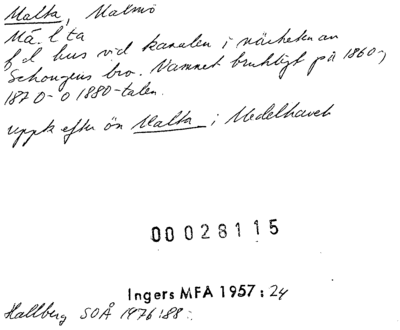 Malta, Malmö
Må. l ta
f d hus vid kanalen i närheten av
Schougens bro. Namnet brukligt på 1860-,
1870- o 1880-talen.
uppk efter ön Malta i Medelhavet
00028115
Ingers MFA 1957: 24
Hallberg SOÅ 1976:88: